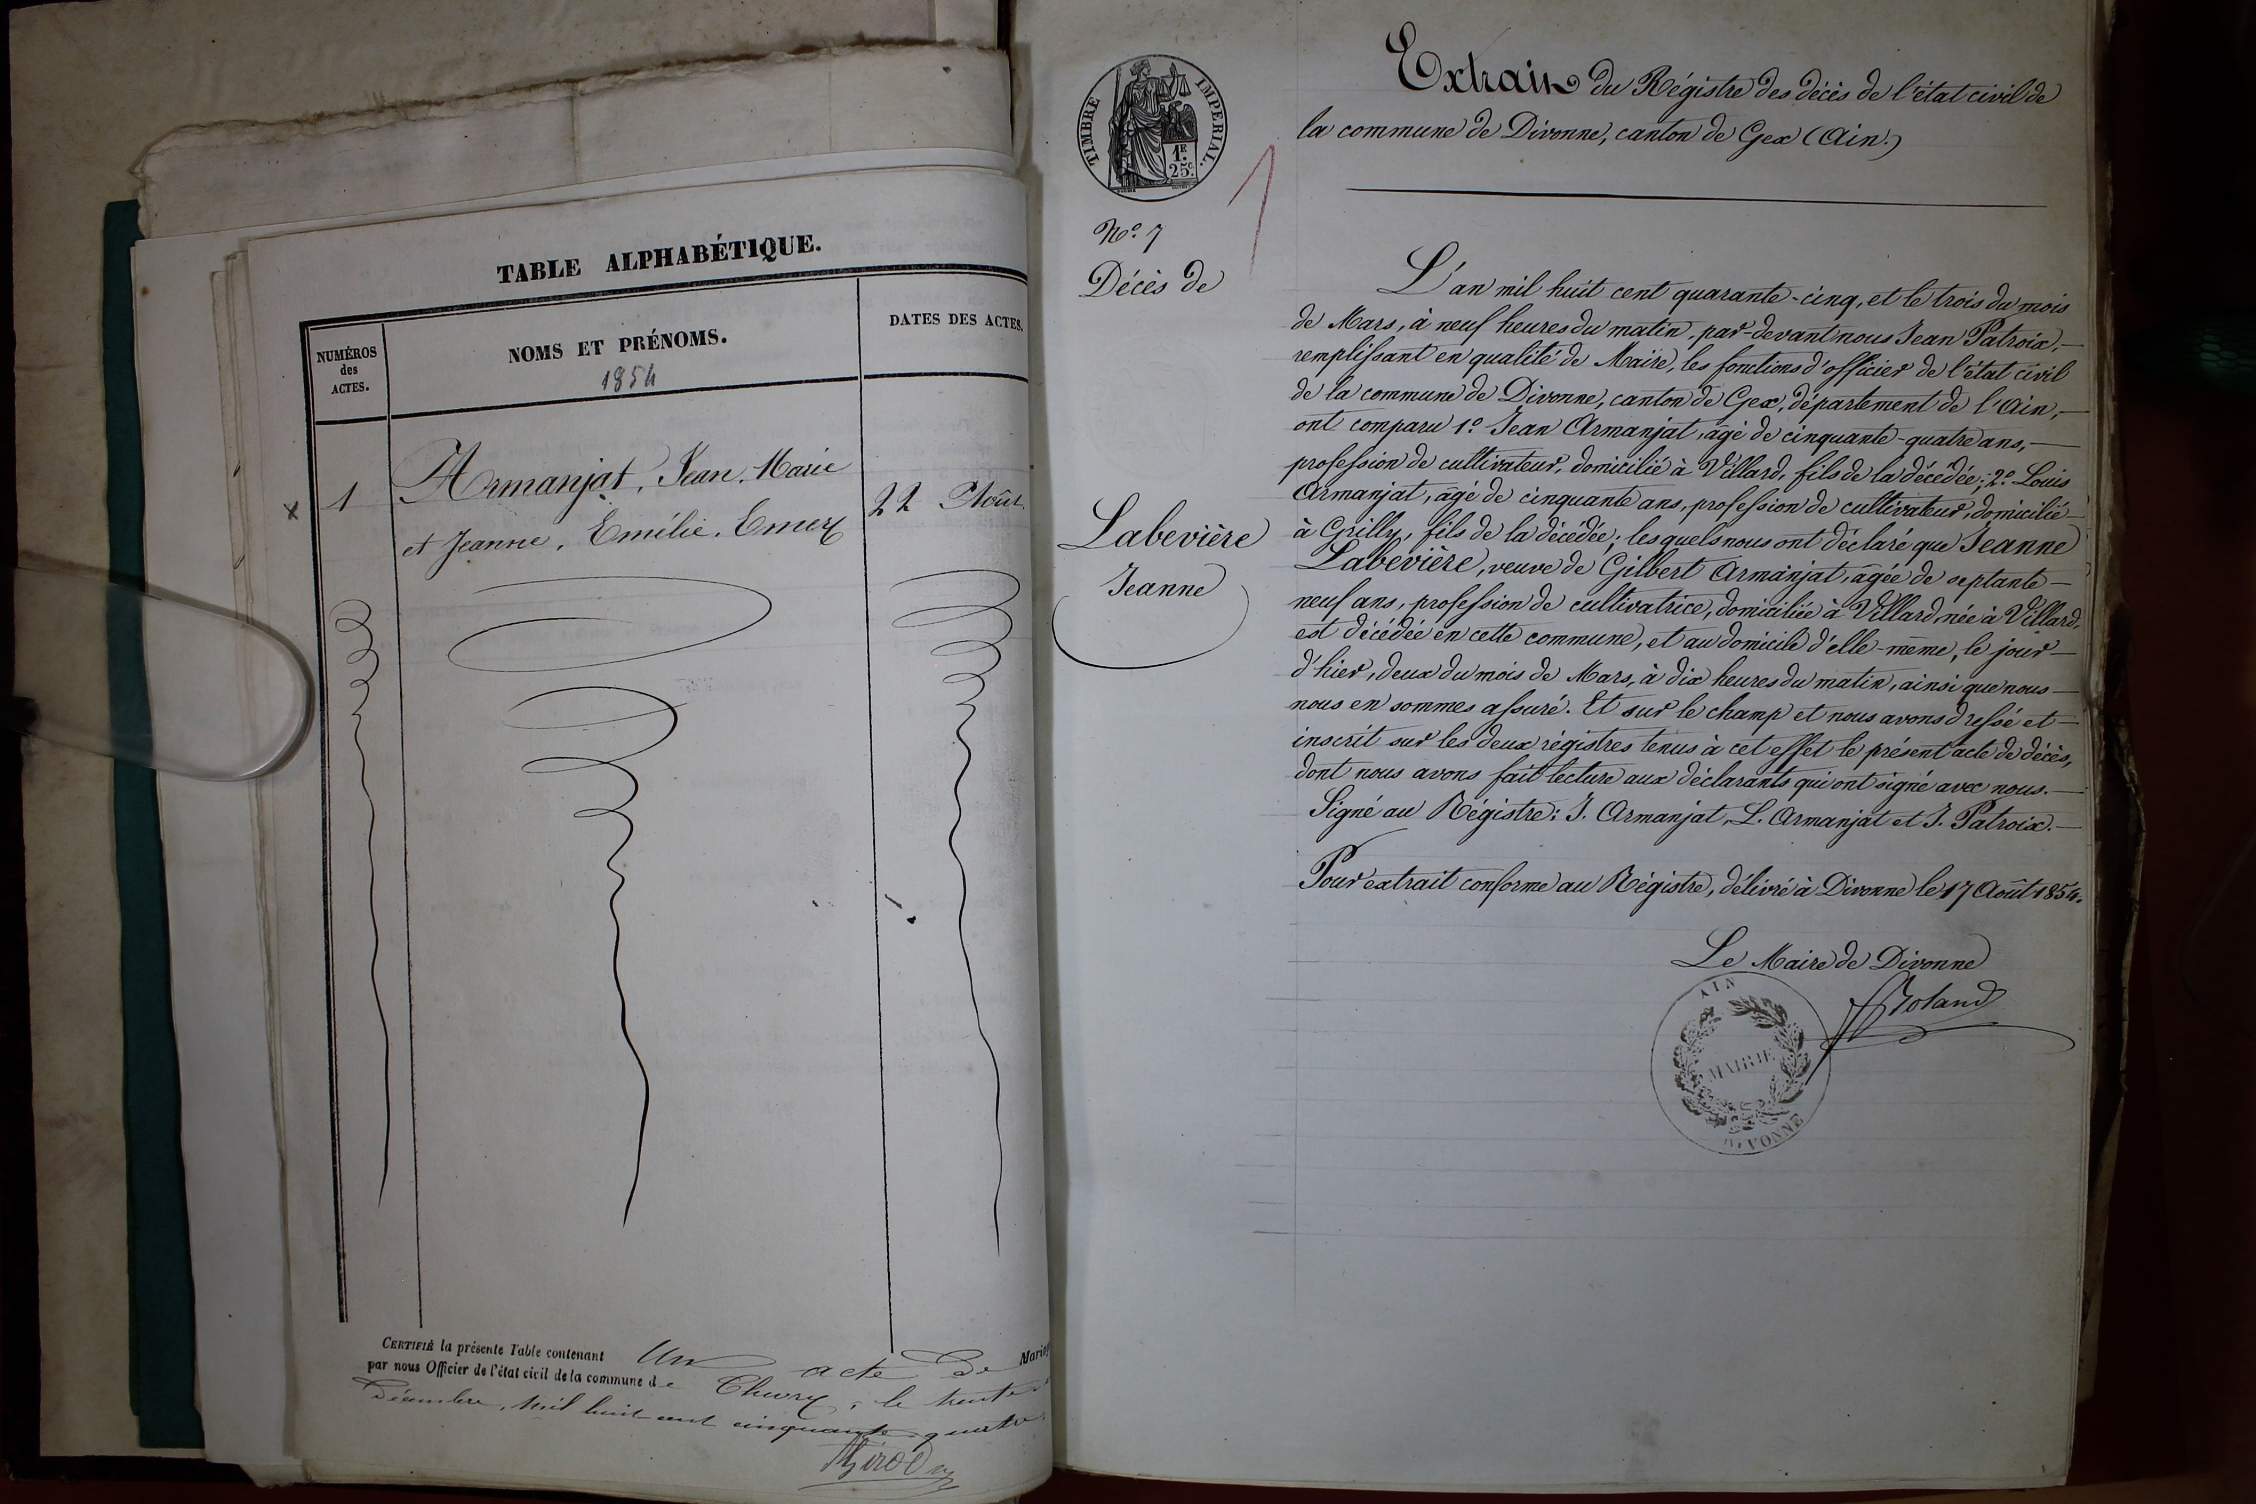 TABLE ALPHABÉTIQUE.
NUMÉROS
des
ACTES.
NOMS ET PRÉNOMS.
1854
DATES DES ACTES.
x 1 Armanjat, Jean, Marie
et Jeanne, Emilie, Emery
22 Août.
CERTIFIÉ la présente Table contenant Un acte de Mariag
par nous Officier de l'état civil de la commune de Chevry, le trente
Décembre, mil huit cent cinquante quatre.
Girod
TIMBRE IMPERIAL.
1F.
25c.
1
No. 7
Décès de
Labevière
Jeanne
Extrait du Régistre des décès de l'état civil de
la commune de Divonne, canton de Gex (Ain.)
L'an mil huit cent quarante-cinq, et le trois du mois
de Mars, à neuf heures du matin, par-devant nous Jean Patroix,
remplissant en qualité de Maire, les fonctions d'officier de l'état civil
de la commune de Divonne, canton de Gex, département de l'Ain,
ont comparu 1o. Jean Armanjat, âgé de cinquante-quatre ans,
profession de cultivateur, domicilié à Villard, fils de la décédée; 2o. Louis
Armanjat, âgé de cinquante ans, profession de cultivateur, domicilié
à Grilly, fils de la décédée; lesquels nous ont déclaré que Jeanne
Labevière, veuve de Gilbert Armanjat, âgée de septante-
neuf ans, profession de cultivatrice, domiciliée à Villard, née à Villard,
est décédée en cette commune, et au domicile d'elle-même, le jour
d'hier, deux du mois de Mars, à dix heures du matin, ainsi que nous
nous en sommes assuré. Et sur le champ et nous avons dressé et
inscrit sur les deux régistres tenus à cet effet le présent acte de décès,
dont nous avons fait lecture aux déclarants qui ont signé avec nous.
Signé au Régistre: J. Armanjat, L. Armanjat et J. Patroix.
Pour extrait conforme au Régistre, délivré à Divonne le 17 Août 1854.
Le Maire de Divonne
Roland
AIN
MAIRIE
DIVONNE